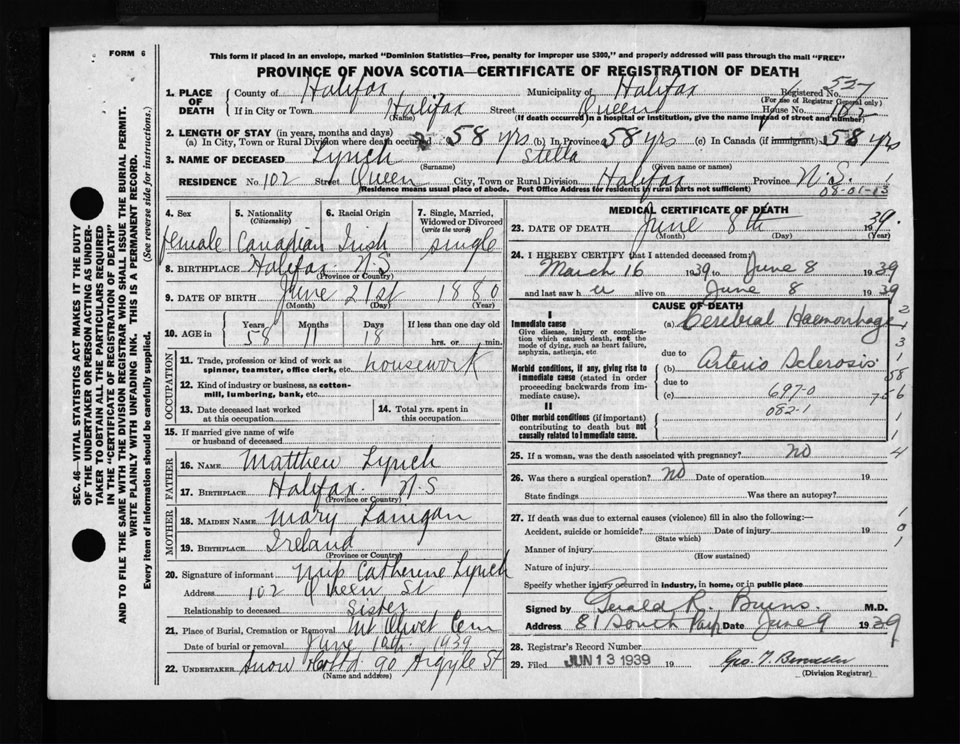 FORM 6
This form if placed in an envelope, marked "Dominion Statistics—Free, penalty for improper use $300," and properly addressed will pass through the mail "FREE"
PROVINCE OF NOVA SCOTIA—CERTIFICATE OF REGISTRATION OF DEATH
SEC. 46—VITAL STATISTICS ACT MAKES IT THE DUTY
OF THE UNDERTAKER OR PERSON ACTING AS UNDER-
TAKER TO OBTAIN ALL THE PARTICULARS REQUIRED
IN THE "CERTIFICATE OF REGISTRATION OF DEATH"
AND TO FILE THE SAME WITH THE DIVISION REGISTRAR WHO SHALL ISSUE THE BURIAL PERMIT.
WRITE PLAINLY WITH UNFADING INK. THIS IS A PERMANENT RECORD.
Every item of information should be carefully supplied. (See reverse side for instructions.)
1. PLACE OF DEATH County of Halifax Municipality of Halifax Registered No. 527
(For use of Registrar General only)
If in City or Town Halifax Street Queen House No. 102
(Name) (If death occurred in a hospital or institution, give the name instead of street and number)
2. LENGTH OF STAY (in years, months and days)
(a) In City, Town or Rural Division where death occurred 58 yrs (b) In Province 58 yrs (c) In Canada (if immigrant) 58 yrs
3. NAME OF DECEASED Lynch Stella
(Surname) (Given name or names)
RESIDENCE No. 102 Street Queen City, Town or Rural Division Halifax Province N.S.
(Residence means usual place of abode. Post Office Address for residents in rural parts not sufficient) 08-01-13
4. Sex 5. Nationality (Citizenship) 6. Racial Origin 7. Single, Married, Widowed or Divorced (write the word)
female Canadian Irish single
8. BIRTHPLACE Halifax N S
(Province or Country)
9. DATE OF BIRTH June 21st 1880
(Month) (Day) (Year)
10. AGE in Years Months Days If less than one day old
58 11 18 hrs. or min.
OCCUPATION
11. Trade, profession or kind of work as spinner, teamster, office clerk, etc. housework
12. Kind of industry or business, as cotton-mill, lumbering, bank, etc.
13. Date deceased last worked at this occupation
14. Total yrs. spent in this occupation
15. If married give name of wife or husband of deceased
FATHER
16. NAME Matthew Lynch
17. BIRTHPLACE Halifax N S
(Province or Country)
MOTHER
18. MAIDEN NAME Mary Lanigan
19. BIRTHPLACE Ireland
(Province or Country)
20. Signature of informant Catherine Lynch
Address 102 Queen St
Relationship to deceased Sister
21. Place of Burial, Cremation or Removal Mt Olivet Cem
Date of burial or removal June 10th 1939
22. UNDERTAKER Snow 90 Argyle St
(Name and address)
MEDICAL CERTIFICATE OF DEATH
23. DATE OF DEATH June 8th 1939
(Month) (Day) (Year)
24. I HEREBY CERTIFY that I attended deceased from:
March 16 1939 to June 8 1939
and last saw h er alive on June 8 1939
CAUSE OF DEATH
I
Immediate cause (a) Cerebral Haemorrhage
Give disease, injury or complication which caused death, not the mode of dying, such as heart failure, asphyxia, asthenia, etc
due to
Morbid conditions, if any, giving rise to immediate cause (stated in order proceeding backwards from immediate cause). (b) Arterio Sclerosis
due to
(c) 697-0
082-1
II
Other morbid conditions (if important) contributing to death but not causally related to immediate cause.
25. If a woman, was the death associated with pregnancy? no
26. Was there a surgical operation? no Date of operation 19
State findings Was there an autopsy?
27. If death was due to external causes (violence) fill in also the following:—
Accident, suicide or homicide? Date of injury 19
(State which)
Manner of injury
(How sustained)
Nature of injury
Specify whether injury occurred in industry, in home, or in public place
Signed by Gerald R. Burns M.D.
Address 81 South Park Date June 9 1939
28. Registrar's Record Number
29. Filed JUN 13 1939 19
(Division Registrar)